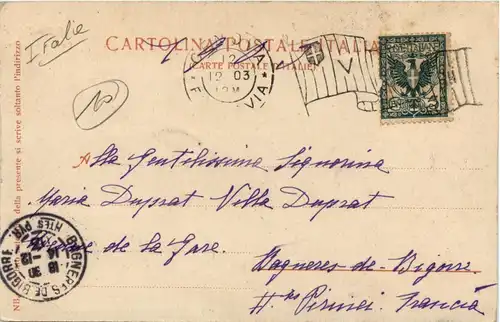 Italie
CARTOLINA POSTALE ITALIANA
(CARTE POSTALE D'ITALIE)
12 03
12M
V
POSTE ITALIANE
10
Alla Gentilissima Signorina
Maria Duprat Villa Duprat
de la Gare.
Bagneres-de-Bigorre
H.tes Pirinei. Francia
NB. della presente si scrive soltanto l'indirizzo
BAGNERES DE BIGORRE
18 30
14 -12
HTES PYR.